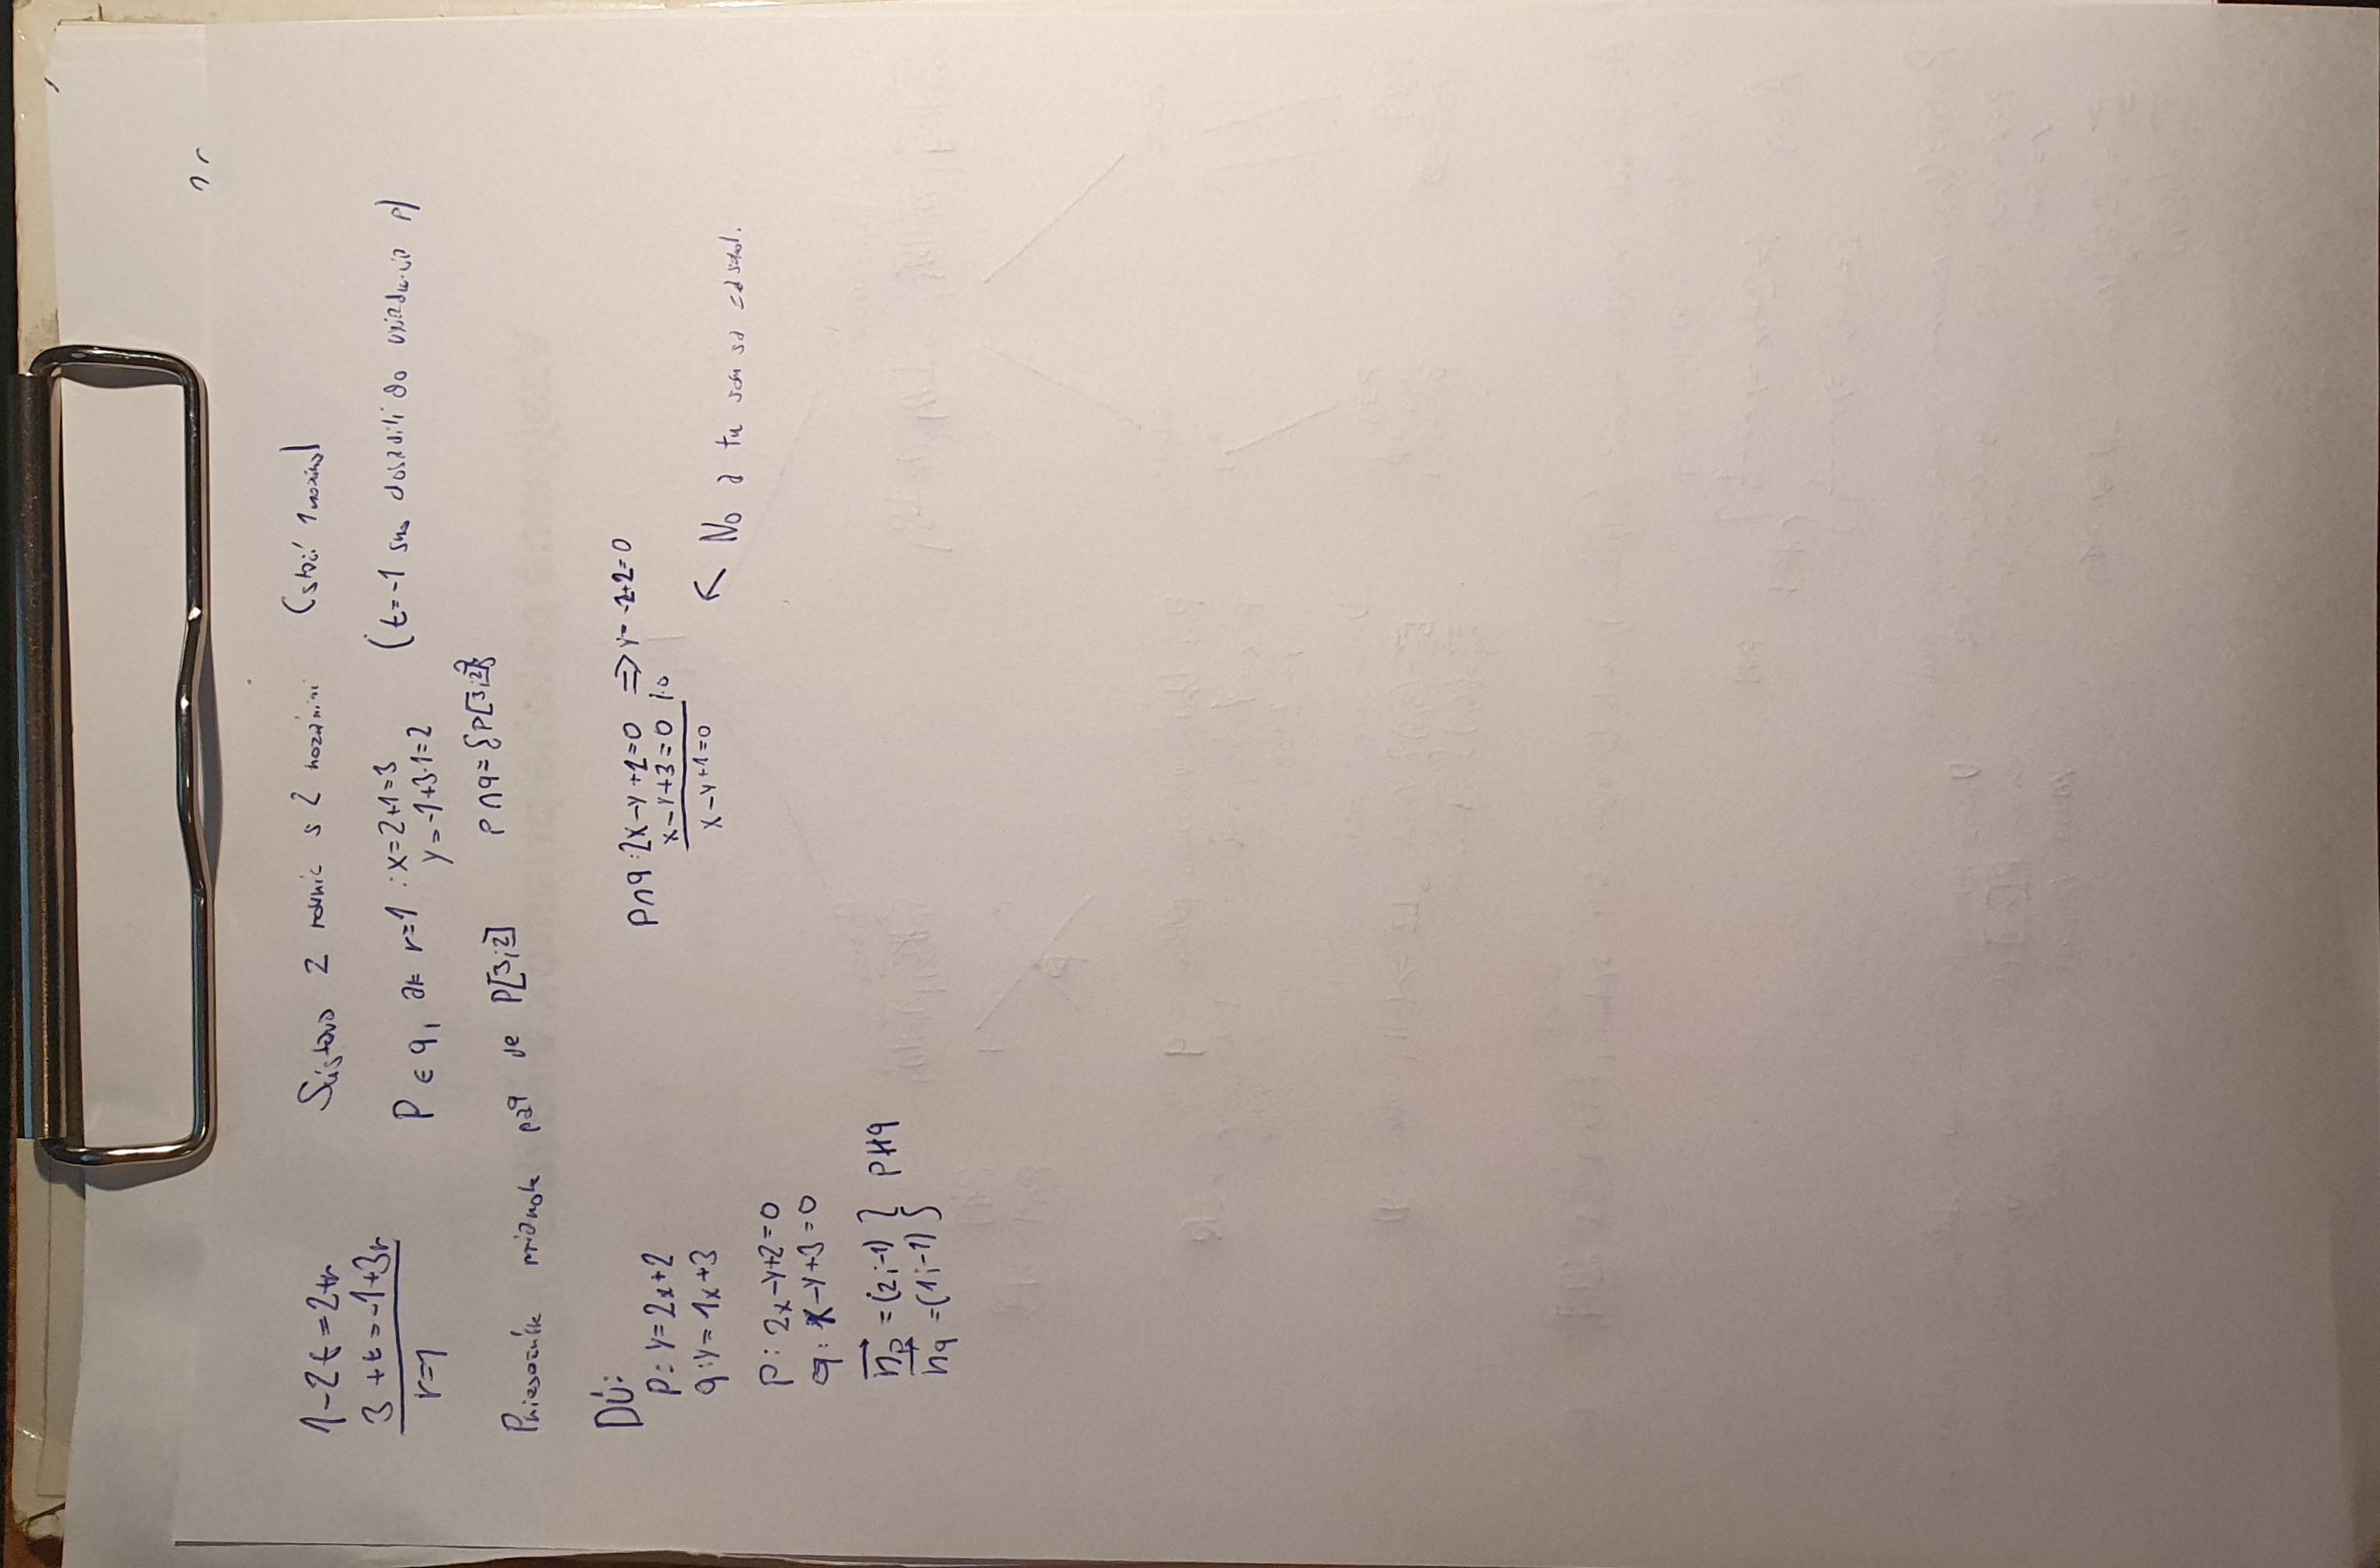 1-2t=2+r
3+t=-1+3r
r=1
Sústava 2 rovníc s 2 neznámími (stačí 1 neznáma)
P ∈ q, ak r=1 : x=2+1=3
y=-1+3·1=2
(t=-1 sme dosadili do vyjadrenia p)
Priesečník priamok p a q je P[3;2] p∩q={P[3;2]}
DÚ:
p: y=2x+2
q: y=1x+3
p: 2x-y+2=0
q: x-y+3=0
n_p=(2;-1) } p∦q
n_q=(1;-1)
p∩q: 2x-y+2=0 ⇒ y= -2+2=0
x-y+3=0
x-y+1=0
↖ No a tu som sa zasekol.